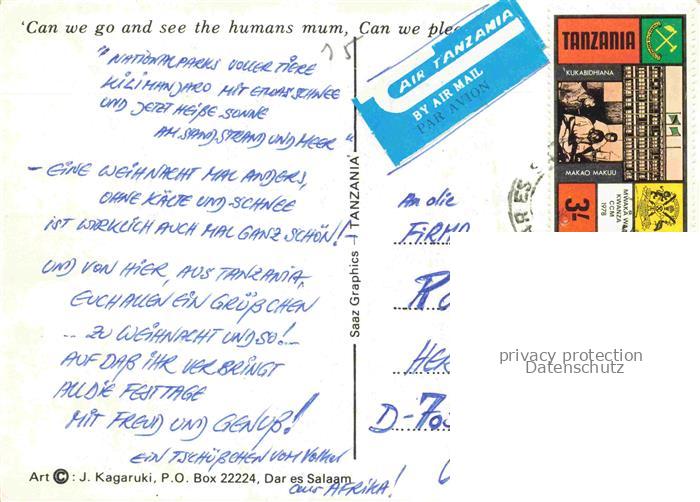 'Can we go and see the humans mum, Can we ple
15
"NATIONALPARKS VOLLER TIERE
KILIMANJARO MIT ETWAS SCHNEE
UND JETZT HEIßE SONNE
AM SANDSTRAND UND MEER"
- EINE WEIHNACHT MAL ANDERS,
OHNE KÄLTE UND SCHNEE
IST WIRKLICH AUCH MAL GANZ SCHÖN!-
UND VON HIER, AUS TANZANIA,
EUCH ALLEN EIN GRÜßCHEN
... ZU WEIHNACHT UND SO!-
AUF DAß IHR VERBRINGT
ALL DIE FESTTAGE
MIT FREUD UND GENUß!
EIN TSCHÜßCHEN VOM Volker
aus AFRIKA!
Art ©: J. Kagaruki, P.O. Box 22224, Dar es Salaam
Saaz Graphics — TANZANIA
AIR TANZANIA
BY AIR MAIL
PAR AVION
An die
FIRMA
D-70
TANZANIA
KUKABIDHIANA
MAKAO MAKUU
3/-
MWAKA WA
KWANZA
CCM
1978
AR ES
privacy protection
Datenschutz